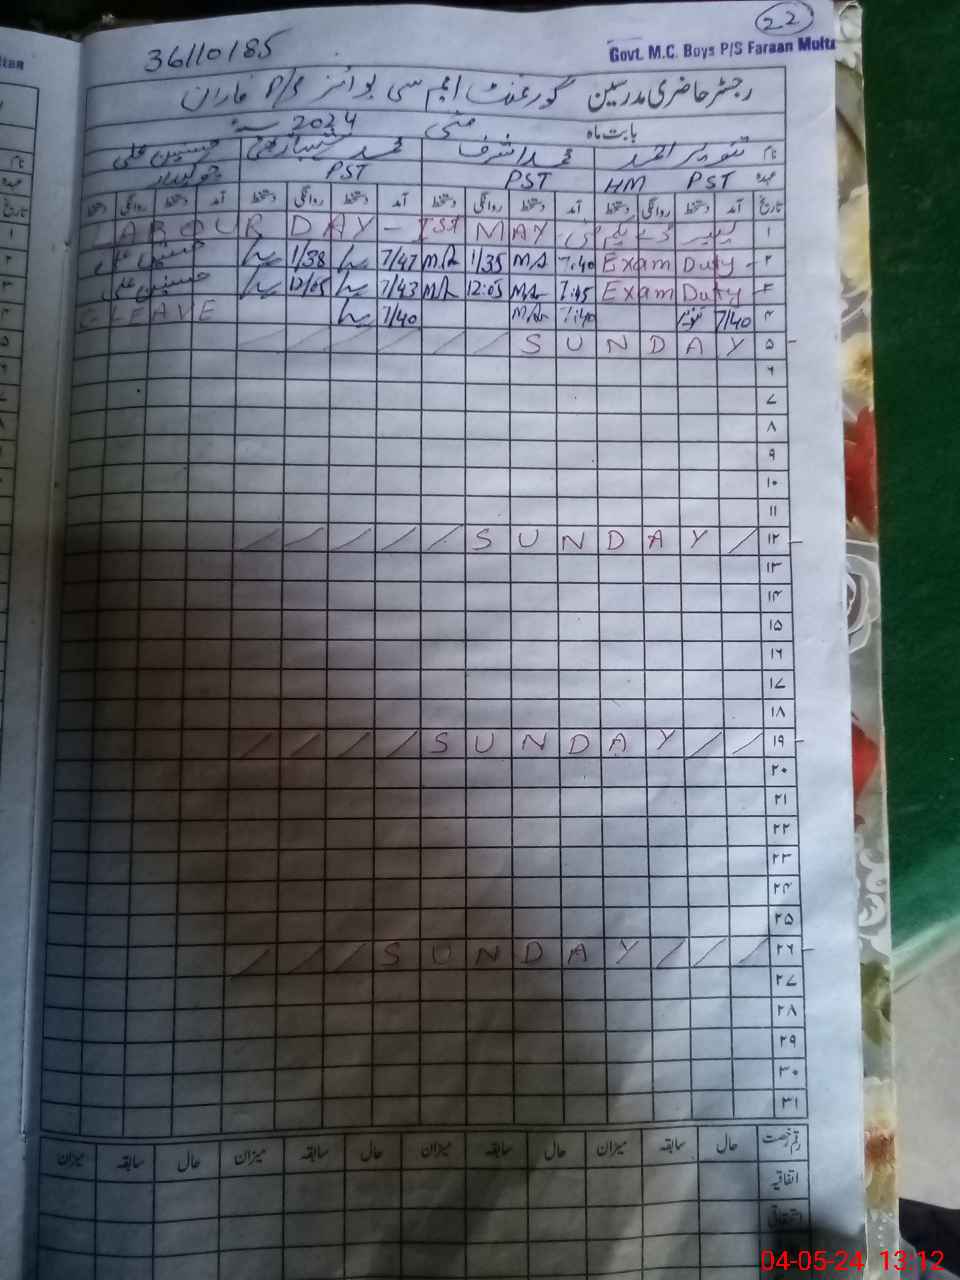 22
36110185
Govt. M.C. Boys P/S Faraan Multa
رجسٹر حاضری مدرسین گورنمنٹ ایم سی بوائز P/S فاران
بابت ماہ مئی 2024 سنہ
نام تنویر احمد محمد اشرف محمد حسین علی
عہدہ PST HM PST PST چوکیدار
تاریخ آمد دستخط روانگی دستخط آمد دستخط روانگی دستخط آمد دستخط روانگی دستخط آمد دستخط روانگی دستخط
۱ LABOUR DAY - Ist MAY
۲ Exam Duty 7:40 1/35 7/47 1/38 حسین علی
۳ Exam Duty 7:45 12:05 7/43 12/05 حسین علی
۴ 7/40 7:40 7/40 C-LEAVE
۵ SUNDAY
۶
۷
۸
۹
۱۰
۱۱
۱۲ SUNDAY
۱۳
۱۴
۱۵
۱۶
۱۷
۱۸
۱۹ SUNDAY
۲۰
۲۱
۲۲
۲۳
۲۴
۲۵
۲۶ SUNDAY
۲۷
۲۸
۲۹
۳۰
۳۱
رقم رخصت حال سابقہ میزان حال سابقہ میزان حال سابقہ میزان حال سابقہ میزان
اتفاقیہ
استحقاقی
04-05-24 13:12